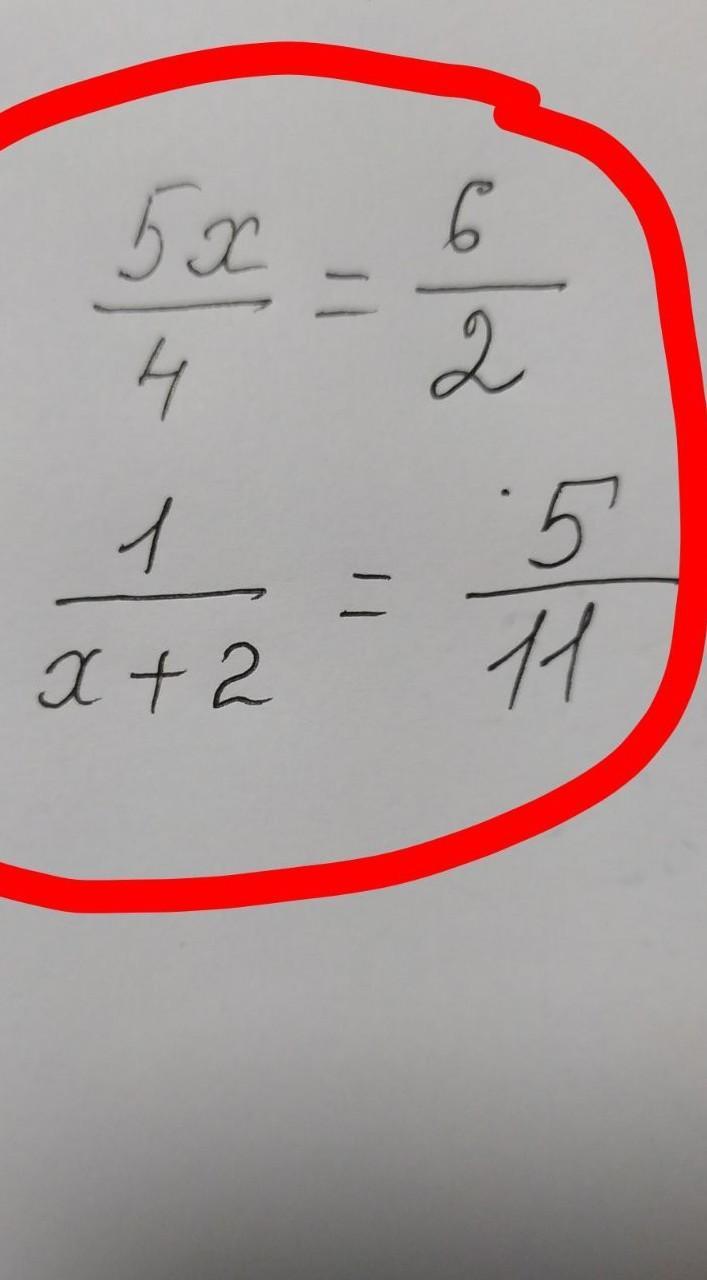 5x/4 = 6/2
1/x+2 = 5/11